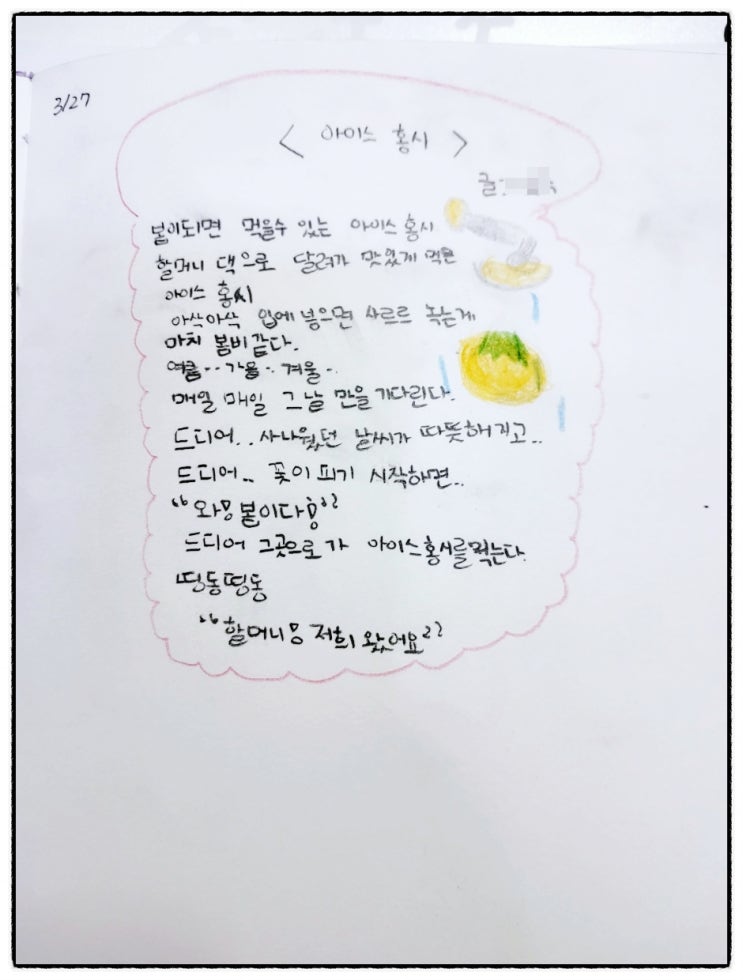 3/27
< 아이스 홍시 >
글:
봄이되면 먹을수 있는 아이스 홍시
할머니 댁으로 달려가 맛있게 먹은
아이스 홍시
아삭아삭 입에 넣으면 사르르 녹는게
마치 봄비 같다.
여름.. 가을.. 겨울..
매일 매일 그날 만을 기다린다.
드디어.. 사나웠던 날씨가 따뜻해지고..
드디어.. 꽃이 피기 시작하면..
"와! 봄이다!"
드디어 그곳으로 가 아이스홍시를 먹는다.
띵동띵동
"할머니! 저희 왔어요"